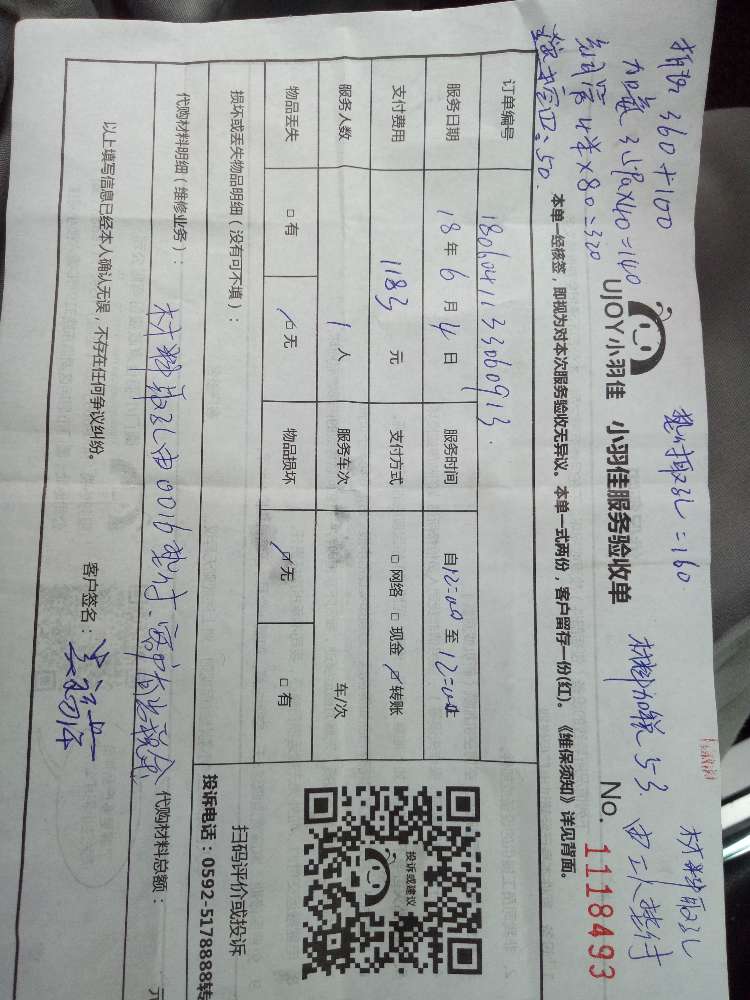 拆洗 360+100
加氟 3.5P×40=140
铜管 4米×80=320
=50.
垫付取孔=160.
材料加税 53.
材料取孔
由工人垫付
UJOY小羽佳
小羽佳服务验收单
No. 1118493
本单一经核签，即视为对本次服务验收无异议。本单一式两份，客户留存一份(红)。《维保须知》详见背面。
订单编号 1806041133060913.
服务日期 18年 6月 4日 服务时间 自12:00至12:00止
支付费用 1183 元 支付方式 □网络 □现金 ☑转账
服务人数 1 人 服务车次 车/次
物品丢失 □有 ☑无 物品损坏 ☑无 □有
损坏或丢失物品明细（没有可不填）：
代购材料明细（维修业务）： 材料取孔由006垫付.
代购材料总额： 元
以上填写信息已经本人确认无误，不存在任何争议纠纷。
客户签名：
投诉或建议
扫码评价或投诉
投诉电话：0592-5178888转